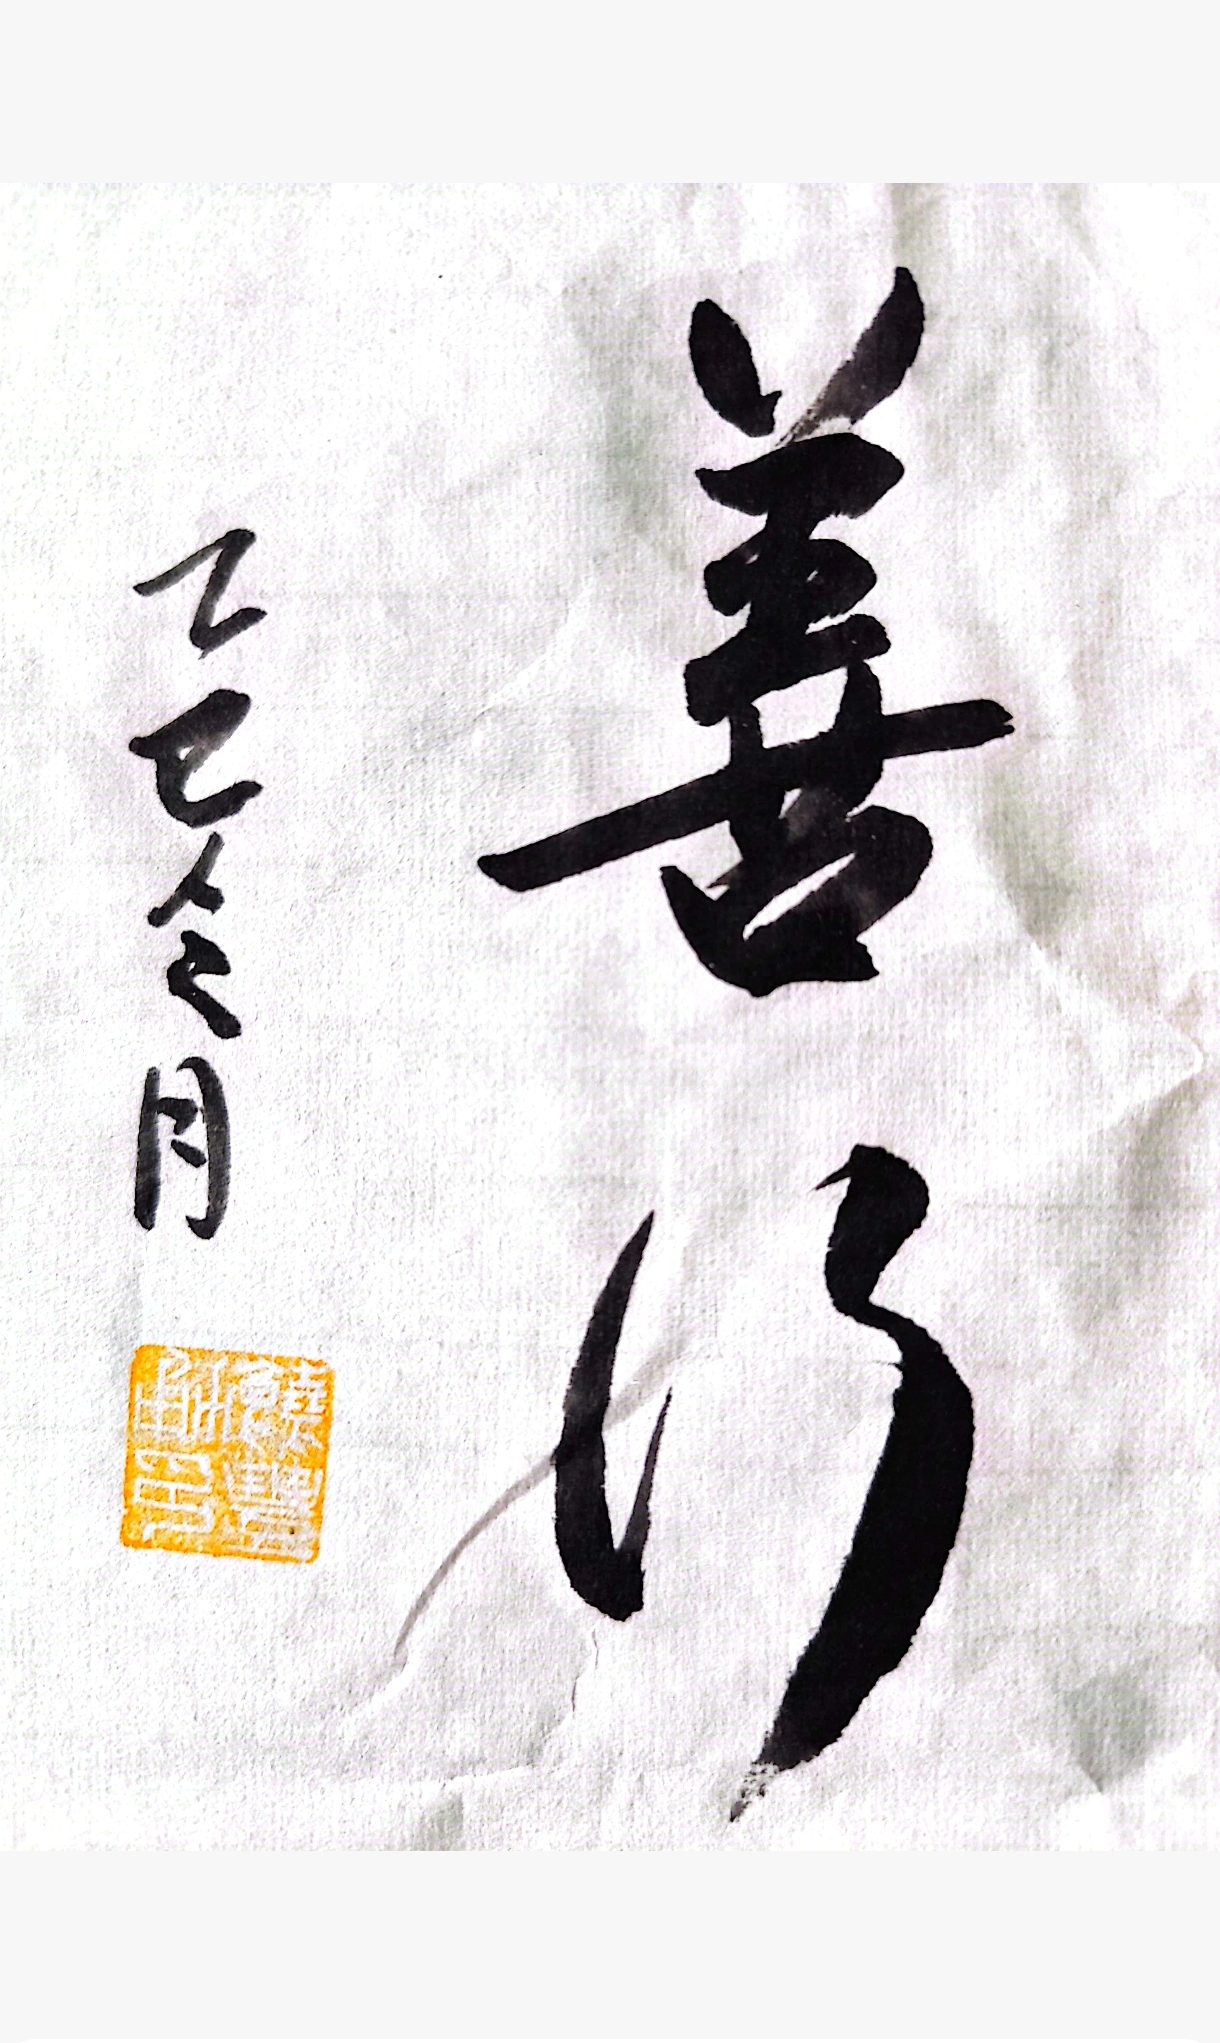 善行
乙巳冬月